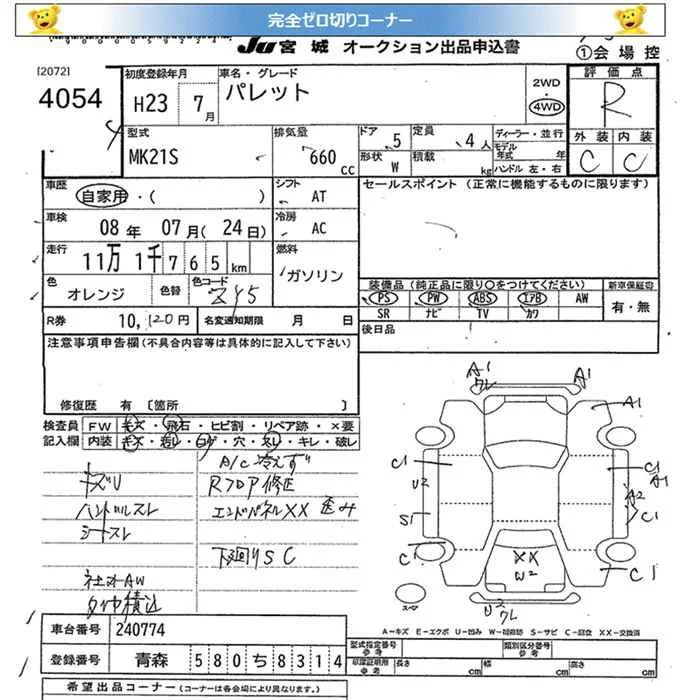 完全ゼロ切りコーナー
JU宮城 オークション出品申込書
①会場控
[2072]
4054
初度登録年月 H23 7月
車名・グレード パレット
2WD
4WD
評価点 R
外装 内装
C C
型式 MK21S
排気量 660 CC
ドア 5
定員 4人
形状 W
積載 kg
ディーラー・並行
モデル年式 年
ハンドル 左・右
車歴 自家用・( )
シフト AT
セールスポイント (正常に機能するものに限ります)
車検 08年 07月(24日)
冷房 AC
走行 11万 1千 7 6 5 km
燃料 ガソリン
色 オレンジ
色替
色コード
装備品(純正品に限り○をつけてください)
新車保証書
PS PW ABS エアB AW
有・無
SR ナビ TV カワ
R券 10,120円
名変通知期限 月 日
後日品
注意事項申告欄(不具合内容等は具体的に記入して下さい)
修復歴 有 〔箇所 〕
検査員 FW キズ・飛石・ヒビ割・リペア跡・×要
記入欄 内装 キズ・汚レ・コゲ・穴・スレ・キレ・破レ
A/C冷えず
キズU
Rフロア修正
ハンドルスレ
エンドパネルXX 歪み
シートスレ
下廻りSC
社外AW
タイヤ積込
A1
スレ
A1
A1
C1
C1
A1
U2
A2
S1
C1
C
C1
XX
W2
U2
スレ
A-キズ E-エクボ U-凹み W-補修跡 S-サビ C-腐食 XX-交換済
車台番号 240774
登録番号 青森 580ち8314
型式指定番号 参考
類別区分番号 参考
車庫証明用 参考
長さ cm
幅 cm
高さ cm
希望出品コーナー(コーナーは各会場により異なります。)